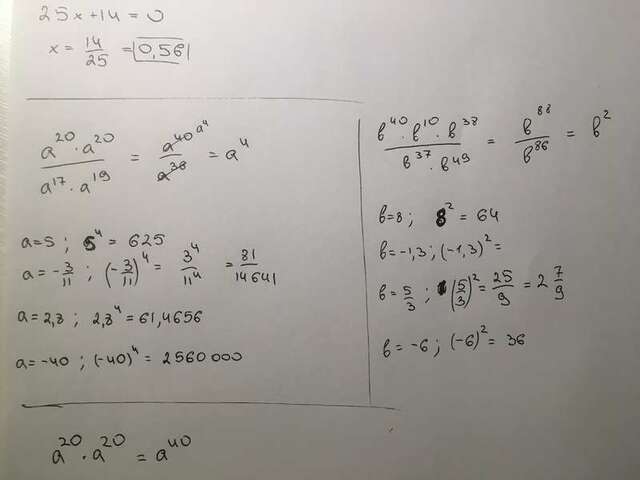 25x+14=0
x = 14/25 = 0,56
a^20 · a^20 / a^17 · a^19 = a^40 a^4 / a^36 = a^4
a=5 ; 5^4 = 625
a= -3/11 ; (-3/11)^4 = 3^4/11^4 = 81/14641
a= 2,8 ; 2,8^4 = 61,4656
a= -40 ; (-40)^4 = 2560 000
в^40 · в^10 · в^38 / в^37 · в^49 = в^88 / в^86 = в^2
в=8 ; 8^2 = 64
в= -1,3 ; (-1,3)^2 =
в= 5/3 ; (5/3)^2 = 25/9 = 2 7/9
в= -6 ; (-6)^2 = 36
a^20 · a^20 = a^40